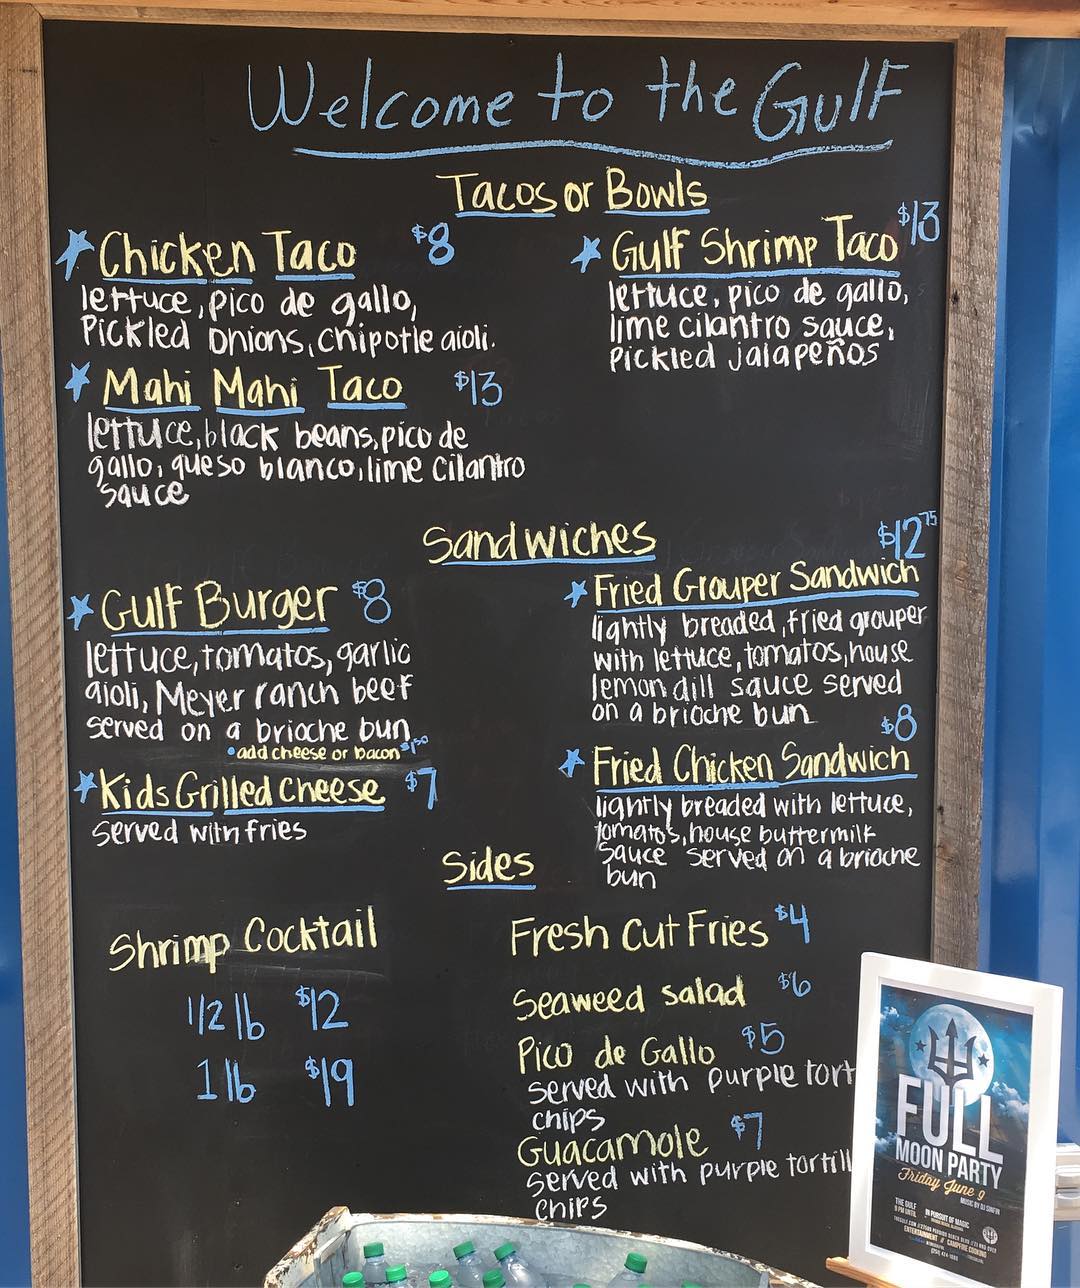 Welcome to the Gulf
Tacos or Bowls
Chicken Taco $8
lettuce, pico de gallo,
Pickled Onions, chipotle aioli.
Mahi Mahi Taco $13
lettuce, black beans, pico de
gallo, queso blanco, lime cilantro
sauce
Gulf Shrimp Taco $13
lettuce, pico de gallo,
lime cilantro sauce,
Pickled jalapeños
Sandwiches
Gulf Burger $8
lettuce, tomatos, garlic
aioli, Meyer ranch beef
served on a brioche bun
• add cheese or bacon
Kids Grilled Cheese $7
served with fries
$12.75
Fried Grouper Sandwich
lightly breaded, fried grouper
with lettuce, tomatos, house
lemon dill sauce served
on a brioche bun
$8
Fried Chicken Sandwich
lightly breaded with lettuce,
tomatos, house buttermilk
sauce served on a brioche
bun
Sides
Shrimp Cocktail
1/2 lb $12
1 lb $19
Fresh Cut Fries $4
Seaweed salad $6
Pico de Gallo $5
served with purple tort
chips
Guacamole $7
served with purple tortill
chips
FULL
MOON PARTY
Friday June 9
MUSIC BY DJ
THE GULF
9 PM UNTIL
IN PURSUIT OF MAGIC
ENTERTAINMENT // CAMPFIRE COOKING